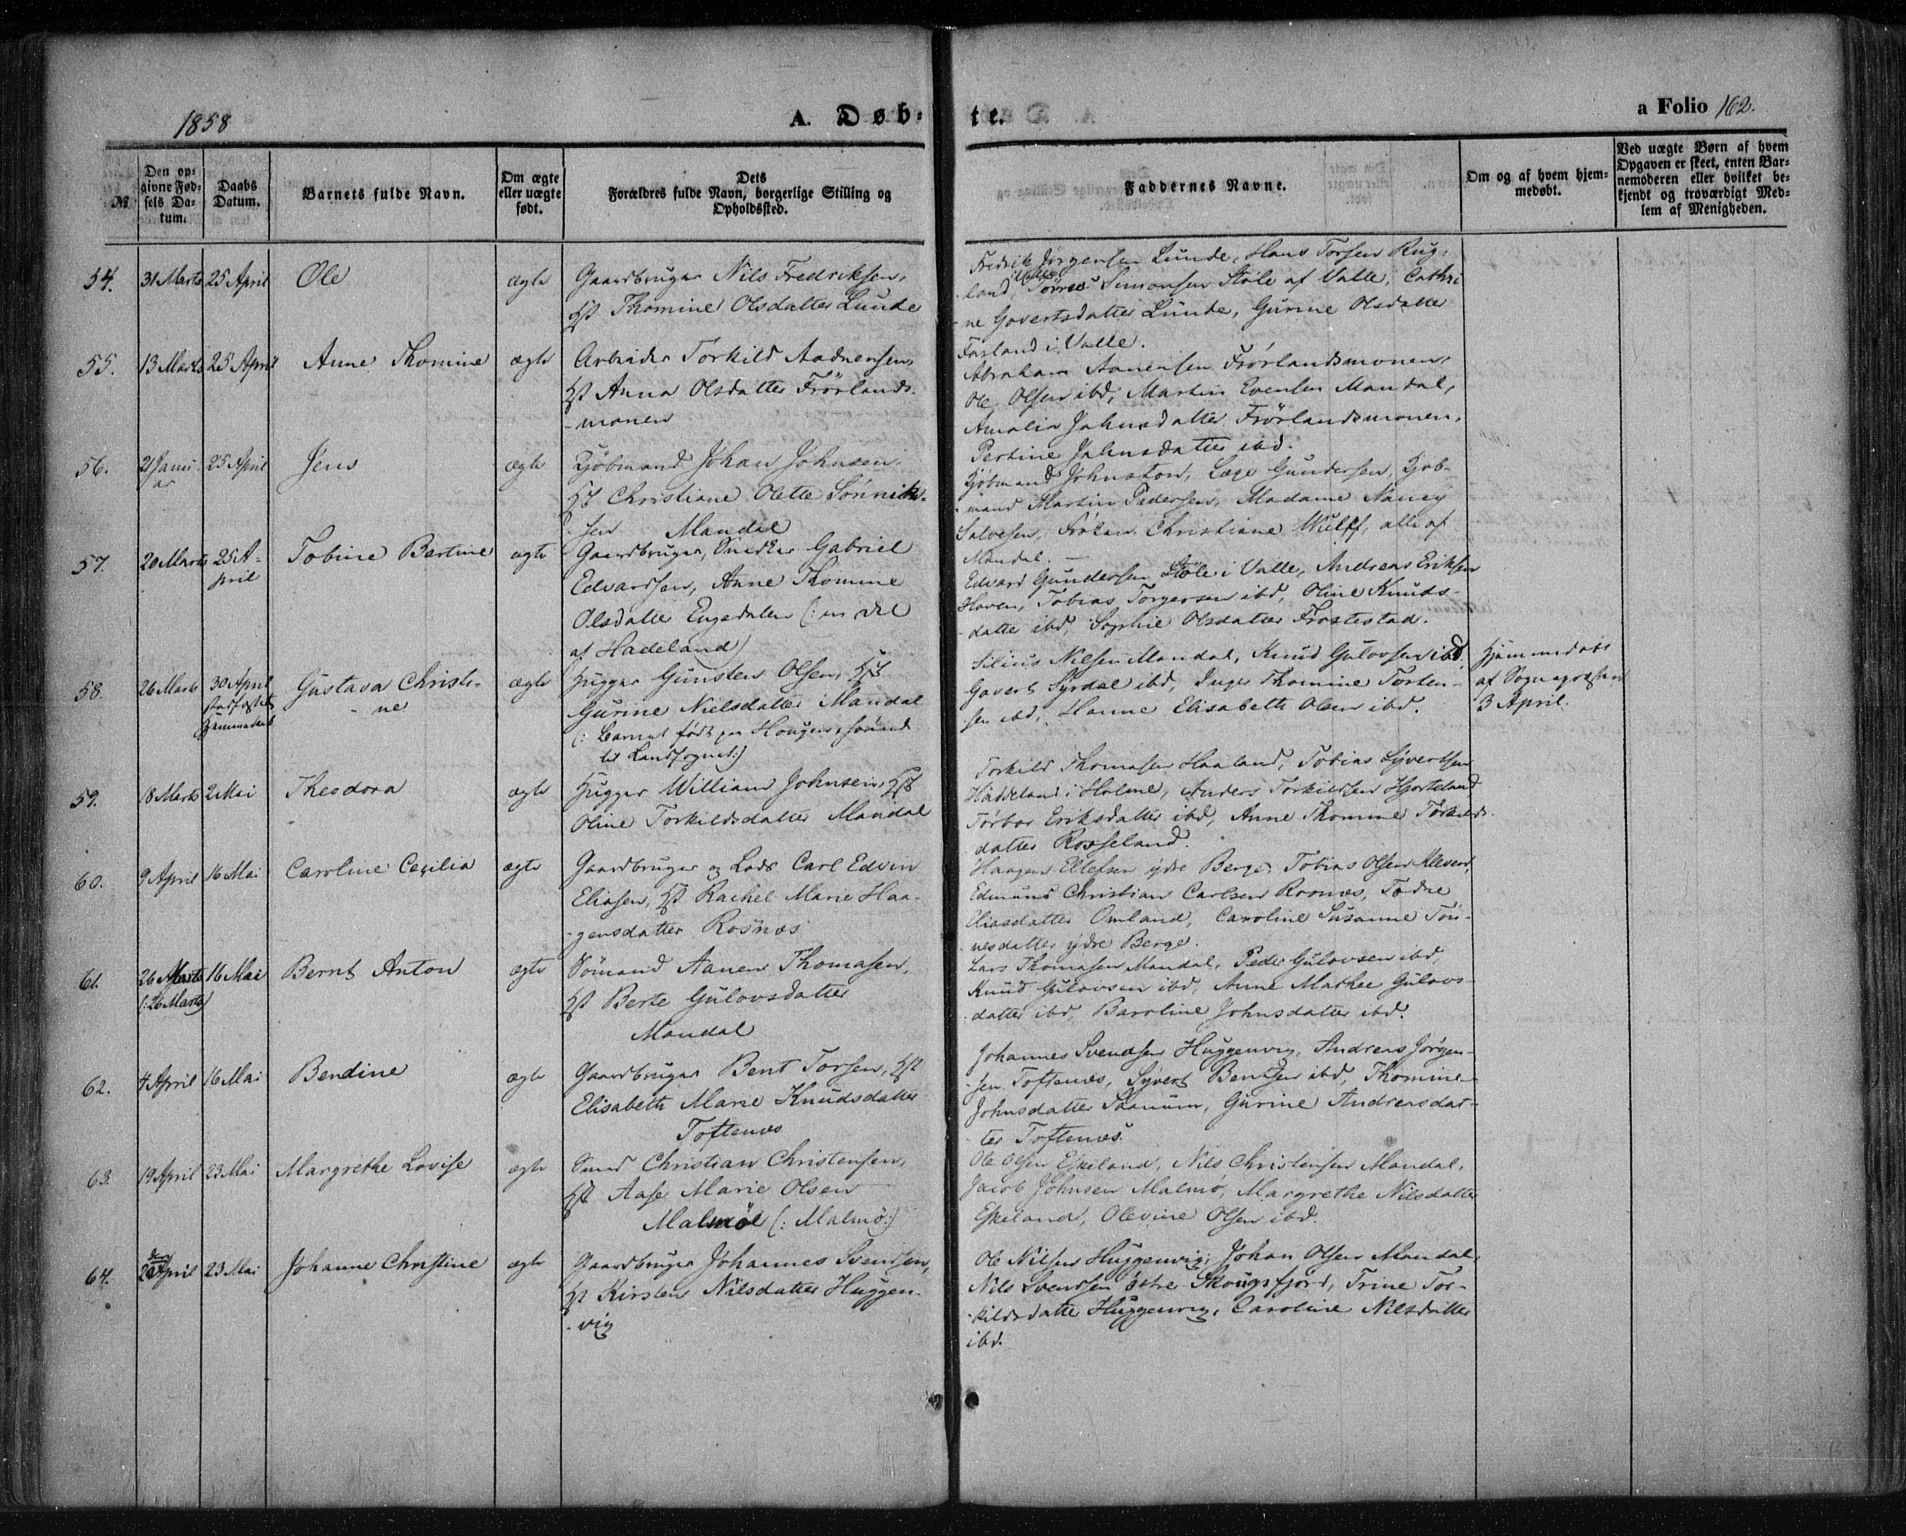 1858
A. Døb-
te.
a Folio 162.
№
Den op-
givne Fød-
sels Da-
tum.
Daabs
Datum.
Barnets fulde Navn.
Om ægte
eller uægte
født.
Dets
Forældres fulde Navn, borgerlige Stilling og
Opholdssted.
Faddernes Navne.
Om og af hvem hjem-
medøbt.
Ved uægte Børn af hvem
Opgaven er skeet, enten Bar-
nemoderen eller hvilket be-
kjendt og troværdigt Med-
lem af Menigheden.
54. 31 Marts 25 April Ole ægte Gaardbruger Nils Fredriksen,
Hst Thomine Olsdatter Lunde
Fredrik Jørgensen Lunde, Hans Torsen Rug-
land, Tørres Simonsen Støle af Valle, Cathri-
ne Govertsdatter Lunde, Gurine Olsdatter
Farland i Valle.
55. 13 Marts 25 April Anne Thomine ægte Arbeider Torkild Aadnensen,
Hst Anna Olsdatter Frørlands-
monen
Abraham Aanensen Frørlandsmonen,
Ole Olsen ibd, Martin Evensen Mandal,
Amalia Jahnsdatter Frørlandsmonen,
Pertine Jahnsdatter ibd.
56. 21 Janu-
ar 25 April Jens ægte Kjøbmand Johan Johnsen,
Hst Christiane Olette Sønnik-
sen Mandal
Kjøbmand Johnston, Læge Gundersen, Kjøb-
mand Martin Pedersen, Madame Nancy
Salvesen, Frøken Christiane Wulff, alle af
Mandal.
57. 20 Marts 25 A-
pril Tobine Bertine ægte Gaardbruger, Snedker Gabriel
Edvardsen, Anne Thomine
Olsdatter Engedalen (: en Del
af Hadeland)
Edvard Gundersen Støle i Valle, Andreas Eriksen
Haven, Tobias Torgersen ibd, Oline Knuds-
datter ibd, Sophie Olsdatter Frostestad.
58. 26 Marts 30 April
stadfæstet
Hjemmedaab Gustava Christi-
ne ægte Hugger Gunsten Olsen, Hst
Gurine Nielsdatter Mandal
(: Barnet født paa Hougen, hørende
til Landsognet:)
Silius Nilsen Mandal, Knud Gulovsen ibd,
Govert Syrdal ibd, Inger Thomine Torten-
sen ibd, Hanne Elisabeth Olsen ibd.
Hjemmedøbt
af Sognepræsten
3 April.
59. 18 Marts 2 Mai Theodora ægte Hugger William Johnsen, Hst
Oline Torkildsdatter Mandal
Torkild Thomasen Haaland, Tobias Syvertsen
Haddeland i Holme, Anders Torkildsen Hjorteland
Torbor Eriksdatter ibd, Anne Thomine Torkilds-
datter Rosseland.
60. 9 April 16 Mai Caroline Cecilia ægte Gaardbruger og Lods Carl Edvin
Eliasen, Hst Rachel Marie Haa-
gensdatter Rosnæs
Haagen Ellefsen ydre Berge, Tobias Olsen Kleven,
Edmund Christian Carlsen Rosnæs, Todne
Eliasdatter Omland, Caroline Susanne Tøn-
nesdatter ydre Berge.
61. 26 Marts
(: 26 Marts) 16 Mai Bernt Anton ægte Sømand Aanen Thomasen,
Hst Berte Gulovsdatter
Mandal
Lars Thomasen Mandal, Peder Gulovsen ibd,
Knud Gulovsen ibd, Anne Mathee Gulovs-
datter ibd, Baroline Johnsdatter ibd.
62. 4 April 16 Mai Bendine ægte Gaardbruger Bent Torsen, Hst
Elisabeth Marie Knudsdatter
Toftenæs
Johannes Svendsen Huggenvig, Andreas Jørgen-
sen Toftenæs, Syvert Bentsen ibd, Thomine
Johnsdatter Saanum, Gurine Andreasdat-
ter Toftenæs.
63. 19 April 23 Mai Margrethe Lovise ægte Smed Christian Christensen,
Hst Aase Marie Olsen
Malmøe (: Malmø:)
Ole Olsen Eskeland, Nils Christensen Mandal,
Jacob Johnsen Malmø, Margrethe Nilsdatter
Eskeland, Olevine Olsen ibd.
64. 20 April 23 Mai Johanne Christine ægte Gaardbruger Johannes Svendsen,
Hst Kirsten Nilsdatter Huggen-
vig
Ole Nilsen Huggenvig, Johan Olsen Mandal,
Nils Svendsen østre Skougsfjord, Trine Tor-
kildsdatter Huggenvig, Caroline Nilsdatter
ibd.